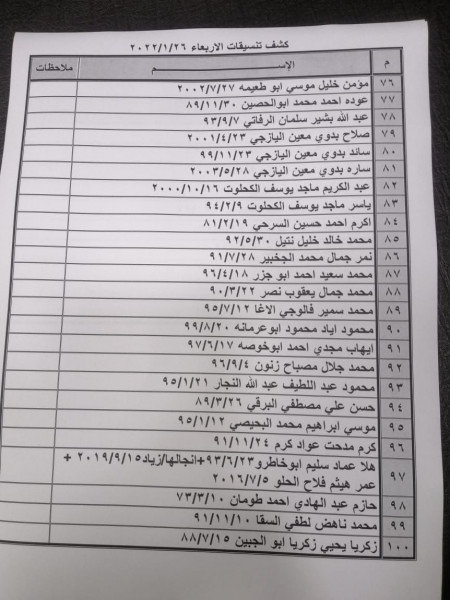 كشف تنسيقات الاربعاء ٢٠٢٢/١/٢٦
م الإســــم ملاحظات
٧٦ مؤمن خليل موسي ابو طعيمه ٢٠٠٢/٧/٢٧
٧٧ عوده احمد محمد ابوالحصين ٨٩/١١/٣٠
٧٨ عبد الله بشير سلمان الرفاتي ٩٣/٩/٧
٧٩ صلاح بدوي معين اليازجي ٢٠٠١/٤/٢٣
٨٠ سائد بدوي معين اليازجي ٩٩/١١/٢٣
٨١ ساره بدوي معين اليازجي ٢٠٠٣/٥/٢٨
٨٢ عبد الكريم ماجد يوسف الكحلوت ٢٠٠٠/١٠/١٦
٨٣ ياسر ماجد يوسف الكحلوت ٩٤/٢/٩
٨٤ اكرم احمد حسين السرحي ٨١/٢/١٩
٨٥ محمد خالد خليل نتيل ٩٢/٥/٣٠
٨٦ نمر جمال محمد الجخبير ٩١/٧/٢٨
٨٧ محمد سعيد احمد ابو جزر ٩٦/٤/١٨
٨٨ محمد جمال يعقوب نصر ٩٠/٣/٢٢
٨٩ محمد سمير فالوجي الاغا ٩٥/٧/١٢
٩٠ محمود اياد محمود ابوعرمانه ٩٩/٨/٢٠
٩١ ايهاب مجدي احمد ابوخوصه ٩٧/٦/١٧
٩٢ محمد جلال مصباح زنون ٩٦/٩/٤
٩٣ محمود عبد اللطيف عبد الله النجار ٩٥/١/٢١
٩٤ حسن علي مصطفي البرقي ٨٩/٣/٢٦
٩٥ موسي ابراهيم محمد البحيصي ٩٥/١/١٢
٩٦ كرم مدحت عواد كرم ٩١/١١/٢٤
٩٧ هلا عماد سليم ابوخاطرو٩٣/٦/٢٣+انجالها/زياد٢٠١٩/٩/١٥ +
عمر هيثم فلاح الحلو ٢٠١٦/٧/٥
٩٨ حازم عبد الهادي احمد طومان ٧٣/٣/١٠
٩٩ محمد ناهض لطفي السقا ٩١/١١/١٠
١٠٠ زكريا يحيي زكريا ابو الجبين ٨٨/٧/١٥